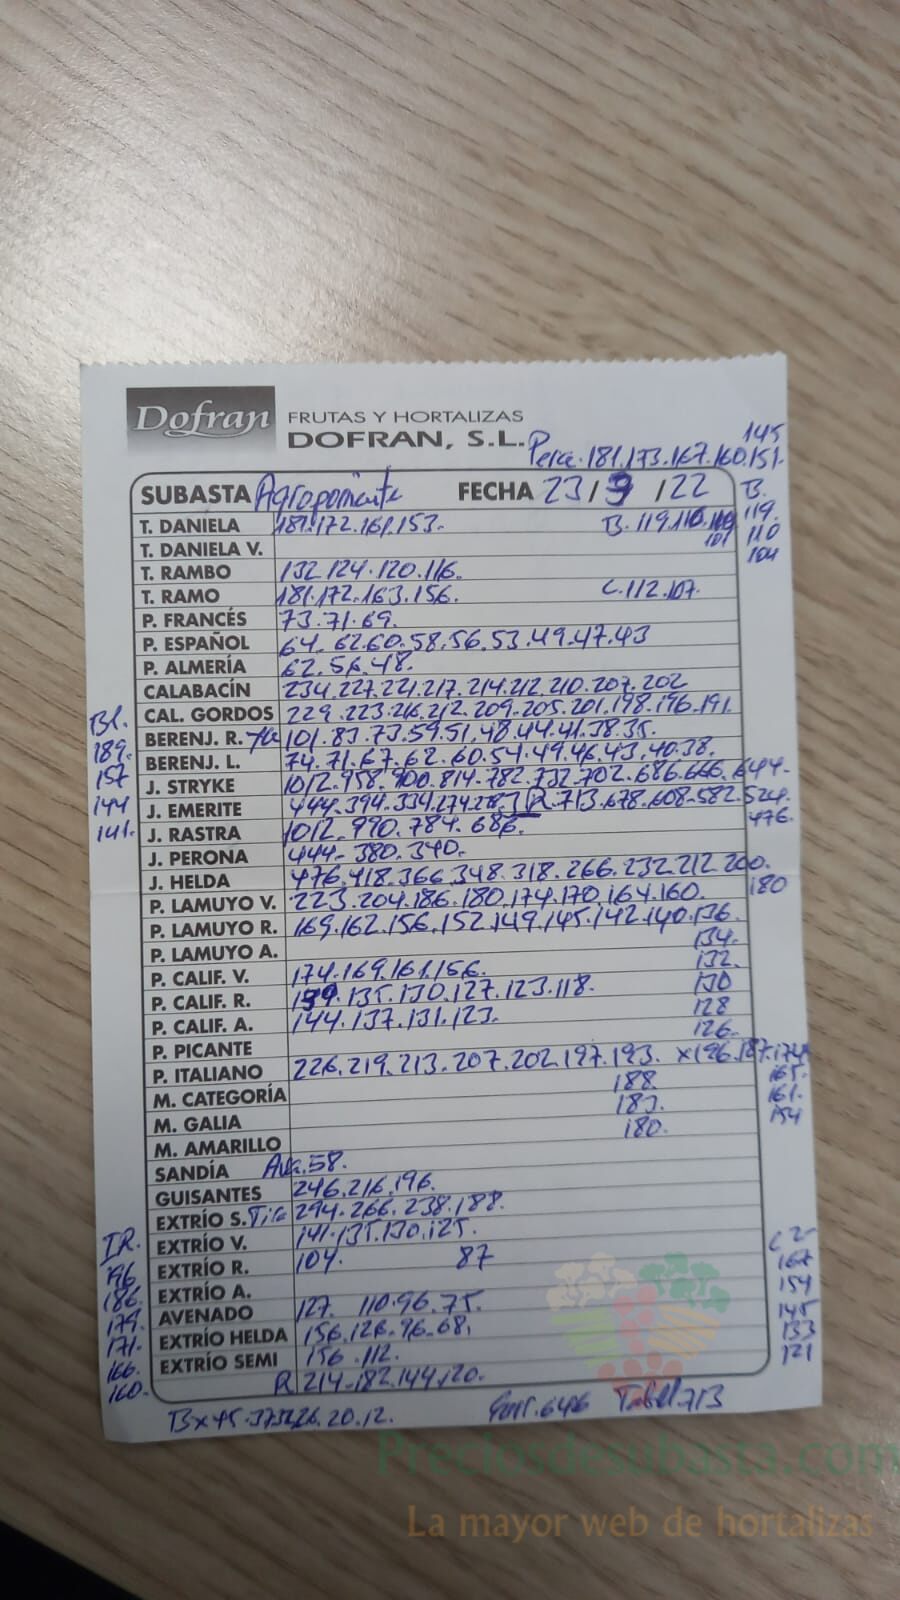 Dofran FRUTAS Y HORTALIZAS
DOFRAN, S.L.
145
Pera.181.173.167.160.151.
SUBASTA Agroponiente FECHA 23/9/22 B.
T. DANIELA 181.172.161.153. B.119.110. 119.
101 110
T. DANIELA V. 104
T. RAMBO 132.124.120.116.
T. RAMO 181.172.163.156. C.112.107.
P. FRANCÉS 73.71.69.
P. ESPAÑOL 64.62.60.58.56.53.49.47.43
P. ALMERÍA 62.56.48.
CALABACÍN 234.227.221.217.214.212.210.207.202
CAL. GORDOS 229.223.216.212.209.205.201.198.196.191.
Bl.
BERENJ. R. 101.83.73.59.51.48.44.41.38.35.
189.
BERENJ. L. 74.71.67.62.60.54.49.46.43.40.38.
157
J. STRYKE 1012.958.900.814.782.732.702.686.666.644.
144
J. EMERITE 444.394.334.274. R.713.678.608.582.524.
141.
J. RASTRA 1012.990.784.686. 476.
J. PERONA 444.380.340.
J. HELDA 476.418.366.348.318.266.232.212.200.
P. LAMUYO V. 223.204.186.180.174.170.164.160. 180
P. LAMUYO R. 169.162.156.152.149.145.142.140.136.
P. LAMUYO A. 134.
P. CALIF. V. 174.169.161.156. 132.
P. CALIF. R. 139.135.130.127.123.118. 130
P. CALIF. A. 144.137.131.123. 128
P. PICANTE 126.
P. ITALIANO 226.219.213.207.202.197.193. x196.187.174
M. CATEGORÍA 188. 165.
M. GALIA 183. 161.
M. AMARILLO 180. 154
SANDÍA 58.
GUISANTES 246.216.196.
EXTRÍO S. 294.266.238.188.
EXTRÍO V. 141.135.130.125.
IR.
EXTRÍO R. 104. 87
196
167
EXTRÍO A.
186.
154
AVENADO 127. 110.96.75.
179.
145
EXTRÍO HELDA 156.126.96.68.
171.
133
EXTRÍO SEMI 156.112.
166.
121
R 214.182.144.120.
160.
20.12.
646 713
Preciosdesubasta.com
La mayor web de hortalizas